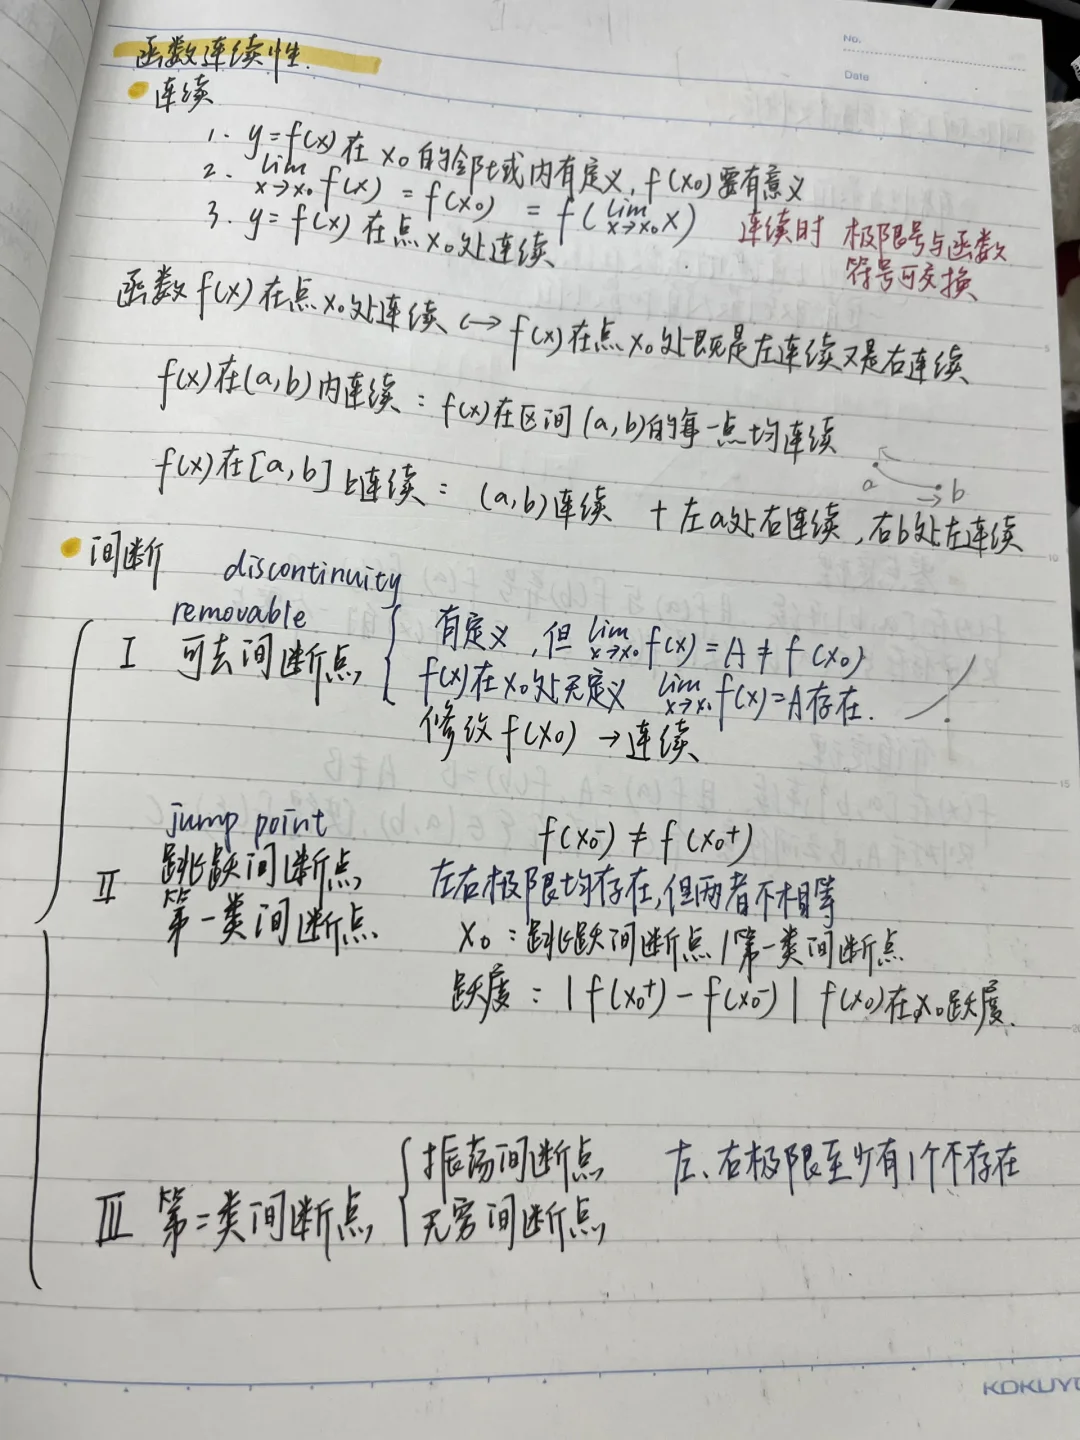 No.
Date
函数连续性.
连续
1. y=f(x)在x₀的邻域内有定义, f(x₀)要有意义
2. lim x→x₀ f(x) = f(x₀) = f(lim x→x₀ x)
连续时 极限号与函数
符号可交换
3. y=f(x)在点x₀处连续
函数f(x)在点x₀处连续 ↔ f(x)在点x₀处既是左连续又是右连续
f(x)在(a,b)内连续: f(x)在区间(a,b)的每一点均连续
a b
f(x)在[a,b]上连续: (a,b)连续 + 左a处右连续, 右b处左连续
间断 discontinuity
removable
I 可去间断点
有定义, 但 lim x→x₀ f(x)=A≠f(x₀)
f(x)在x₀处无定义 lim x→x₀ f(x)=A存在.
修改f(x₀) →连续
jump point
f(x₀⁻) ≠ f(x₀⁺)
II 跳跃间断点
左右极限均存在,但两者不相等
第一类间断点
x₀: 跳跃间断点/第一类间断点
跃度: |f(x₀⁺) - f(x₀⁻)| f(x₀)在x₀跃度.
III 第二类间断点
振荡间断点 左、右极限至少有1个不存在
无穷间断点
KOKUYO